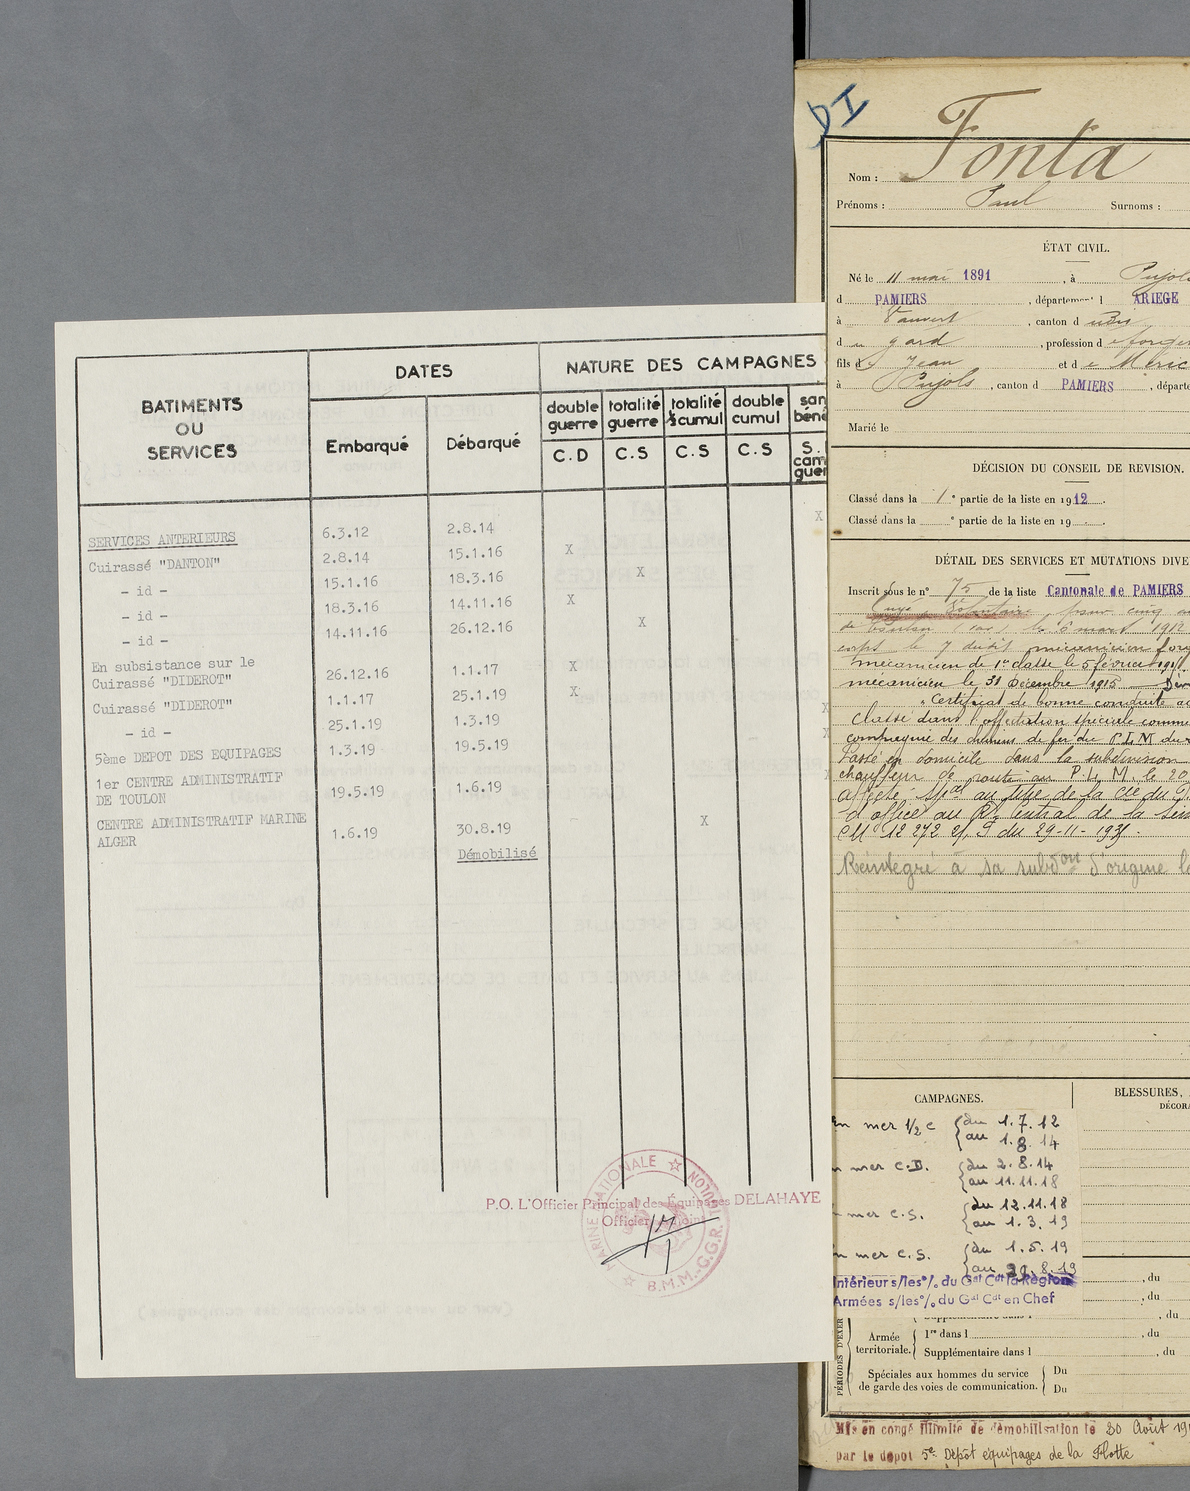 BATIMENTS
OU
SERVICES
DATES
Embarqué
Débarqué
NATURE DES CAMPAGNES
double
guerre
totalité
guerre
totalité
½cumul
double
cumul
san
béné
C.D
C.S
C.S
C.S
S.
cam
guer
SERVICES ANTERIEURS 6.3.12 2.8.14 X
Cuirassé "DANTON" 2.8.14 15.1.16 X
- id - 15.1.16 18.3.16 X
- id - 18.3.16 14.11.16 X
- id - 14.11.16 26.12.16 X
En subsistance sur le
Cuirassé "DIDEROT" 26.12.16 1.1.17 X
Cuirassé "DIDEROT" 1.1.17 25.1.19 X
- id - 25.1.19 1.3.19
5ème DEPOT DES EQUIPAGES 1.3.19 19.5.19
1er CENTRE ADMINISTRATIF
DE TOULON 19.5.19 1.6.19
CENTRE ADMINISTRATIF MARINE
ALGER 1.6.19 30.8.19 X
Démobilisé
P.O. L'Officier Principal des Équipages DELAHAYE
Officier
MARINE NATIONALE ☆ TOULON
B.M.M.-C.G.R.
DI
Nom : Fonta
Prénoms : Paul Surnoms :
ÉTAT CIVIL.
Né le 11 mai 1891, à Pujols
d PAMIERS, département ARIEGE
à Vauvert, canton d
du gard, profession de forger
fils de Jean et de
à Pujols, canton d PAMIERS, départe
Marié le
DÉCISION DU CONSEIL DE REVISION.
Classé dans la 1e partie de la liste en 1912.
Classé dans la e partie de la liste en 19
DÉTAIL DES SERVICES ET MUTATIONS DIVE
Inscrit sous le n° 75 de la liste Cantonale de PAMIERS
Engagé Volontaire pour cinq
de Toulon le 6 mars 1912
corps le 7 dudit mécanicien
mécanicien de 1re classe le 5 février
mécanicien le 31 décembre 1915
Certificat de bonne conduite
Classé dans l'affectation spéciale comme
compagnie des chemins de fer du P.L.M.
Passé en domicile dans la subdivision
chauffeur de route au P.L.M. le 20
Affecté au titre de la Cie du P.
d'office au
du 29-11-193
Réintégré à sa subdon d'origine
CAMPAGNES.
En mer 1/2 c { du 1.7.12
{ au 1.8.14
mer C.D. { du 2.8.14
{ au 11.11.18
mer C.S. { du 12.11.18
{ au 1.3.19
mer C.S. { du 1.5.19
{ au 29.8.19
Intérieur s/les°/. du Gal Cdt la Région
Armées s/les°/. du Gal Cdt en Chef
BLESSURES,
DÉCORA
, du
, du
Supplémentaire dans l , du
PÉRIODES D'EXER
Armée
territoriale.
1re dans l , du
Supplémentaire dans l , du
Spéciales aux hommes du service
de garde des voies de communication.
Du
Du
Mis en congé illimité de démobilisation le 30 Août 19
par le dépot 5e Dépôt équipages de la Flotte